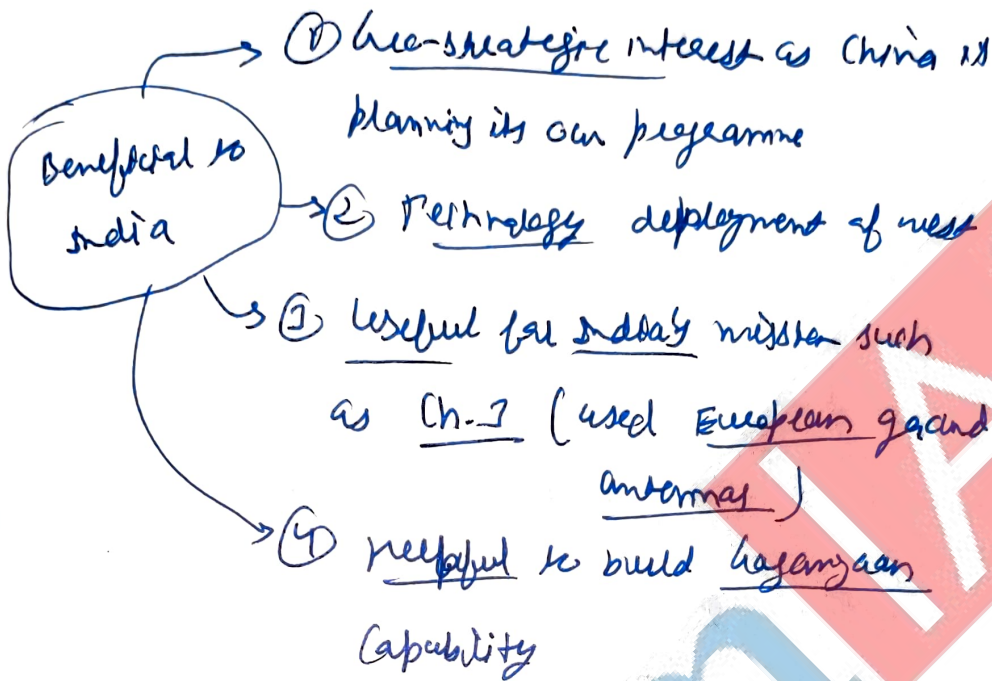 Beneficial to
India
① Geo-strategic interest as China is
planning its own programme
② Technology deployment of west
③ Useful for India's mission such
as Ch-3 (used European ground
antennas)
④ Helpful to build Gaganyaan
Capability
IA